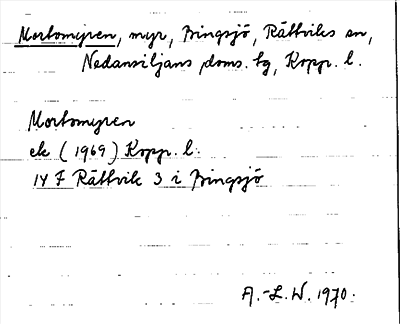 Morbomyren, myr, Bingsjö, Rättviks sn,
Nedansiljans doms. tg, Kopp. l.
Morbomyren
ek (1969) Kopp. l.
14 F Rättvik 3 i Bingsjö
A.-L. W. 1970.